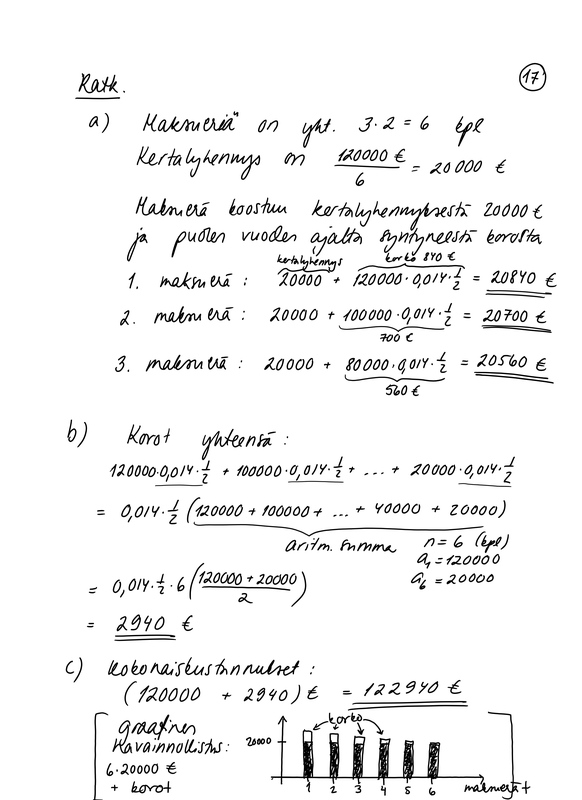 17
Ratk.
a) Maksueriä on yht. 3·2 = 6 kpl
Kertalyhennys on 120000 € / 6 = 20000 €
Maksuerä koostuu kertalyhennyksestä 20000 €
ja puolen vuoden ajalta syntyneestä korosta
kertalyhennys korko 840 €
1. maksuerä : 20000 + 120000·0,014·1/2 = 20840 €
2. maksuerä : 20000 + 100000·0,014·1/2 = 20700 €
700 €
3. maksuerä : 20000 + 80000·0,014·1/2 = 20560 €
560 €
b) Korot yhteensä :
120000·0,014·1/2 + 100000·0,014·1/2 + ... + 20000·0,014·1/2
= 0,014·1/2 (120000 + 100000 + ... + 40000 + 20000)
aritm. summa n = 6 (kpl)
a₁ = 120000
a₆ = 20000
= 0,014·1/2·6 (120000 + 20000 / 2)
= 2940 €
c) Kokonaiskustannukset :
(120000 + 2940) € = 122940 €
graafinen
havainnollistus :
6·20000 €
+ korot
korko
20000
1 2 3 4 5 6
maksuerät